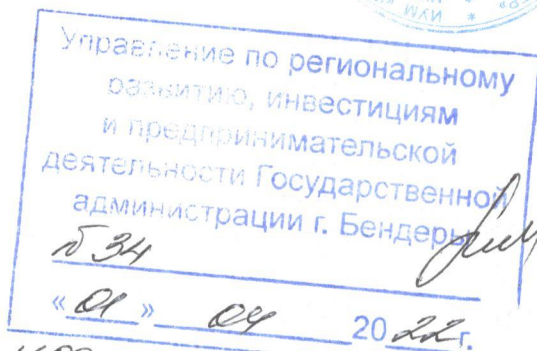 Управление по региональному
развитию, инвестициям
и предпринимательской
деятельности Государственной
администрации г. Бендеры
№ 34
« 01 » 04 2022г.